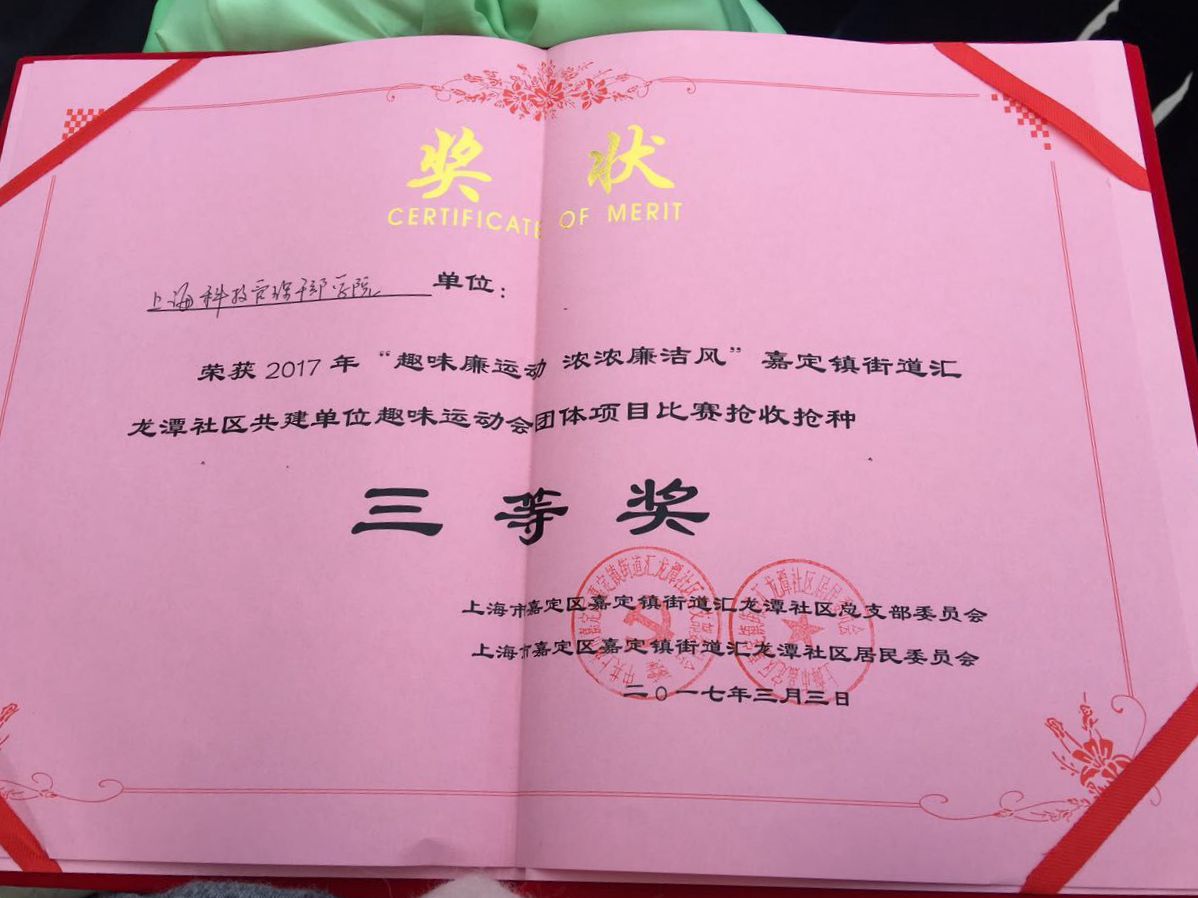 奖状
CERTIFICATE OF MERIT
上海科技管理干部学院 单位：
荣获 2017 年 “趣味廉运动 浓浓廉洁风” 嘉定镇街道汇
龙潭社区共建单位趣味运动会团体项目比赛抢收抢种
三等奖
上海市嘉定区嘉定镇街道汇龙潭社区总支部委员会
上海市嘉定区嘉定镇街道汇龙潭社区居民委员会
二0一七年三月三日